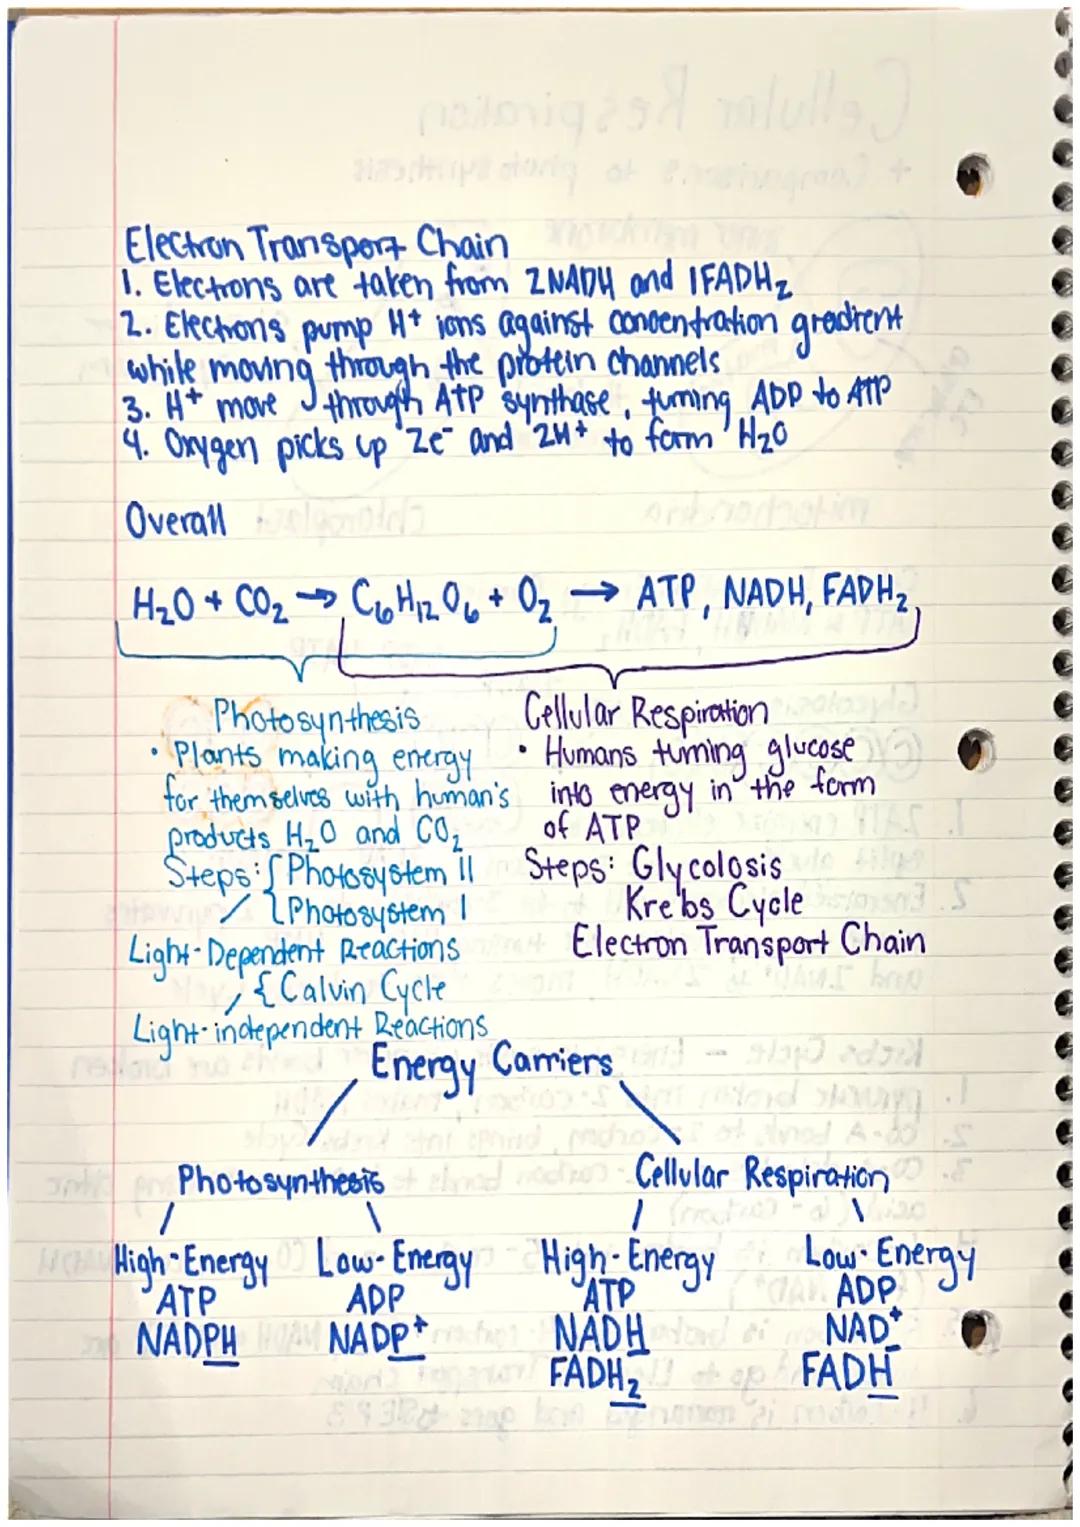 Electron Transport Chain
1. Electrons are taken from 2NADH and 1FADH₂
2. Electrons pump H⁺ ions against concentration gradient
while moving through the protein channels
3. H⁺ move through ATP synthase, turning ADP to ATP
4. Oxygen picks up 2e⁻ and 2H⁺ to form H₂O
Overall
H₂O + CO₂ → C₆H₁₂O₆ + O₂ → ATP, NADH, FADH₂
Photosynthesis
• Plants making energy
for themselves with human's
products H₂O and CO₂
Steps: { Photosystem II
{ Photosystem I
Light-Dependent Reactions
{ Calvin Cycle
Light-independent Reactions
Cellular Respiration
• Humans turning glucose
into energy in the form
of ATP
Steps: Glycolosis
Krebs Cycle
Electron Transport Chain
Energy Carriers
Photosynthesis
High-Energy
ATP
NADPH
Low-Energy
ADP
NADP⁺
Cellular Respiration
High-Energy
ATP
NADH
FADH₂
Low-Energy
ADP
NAD⁺
FADH